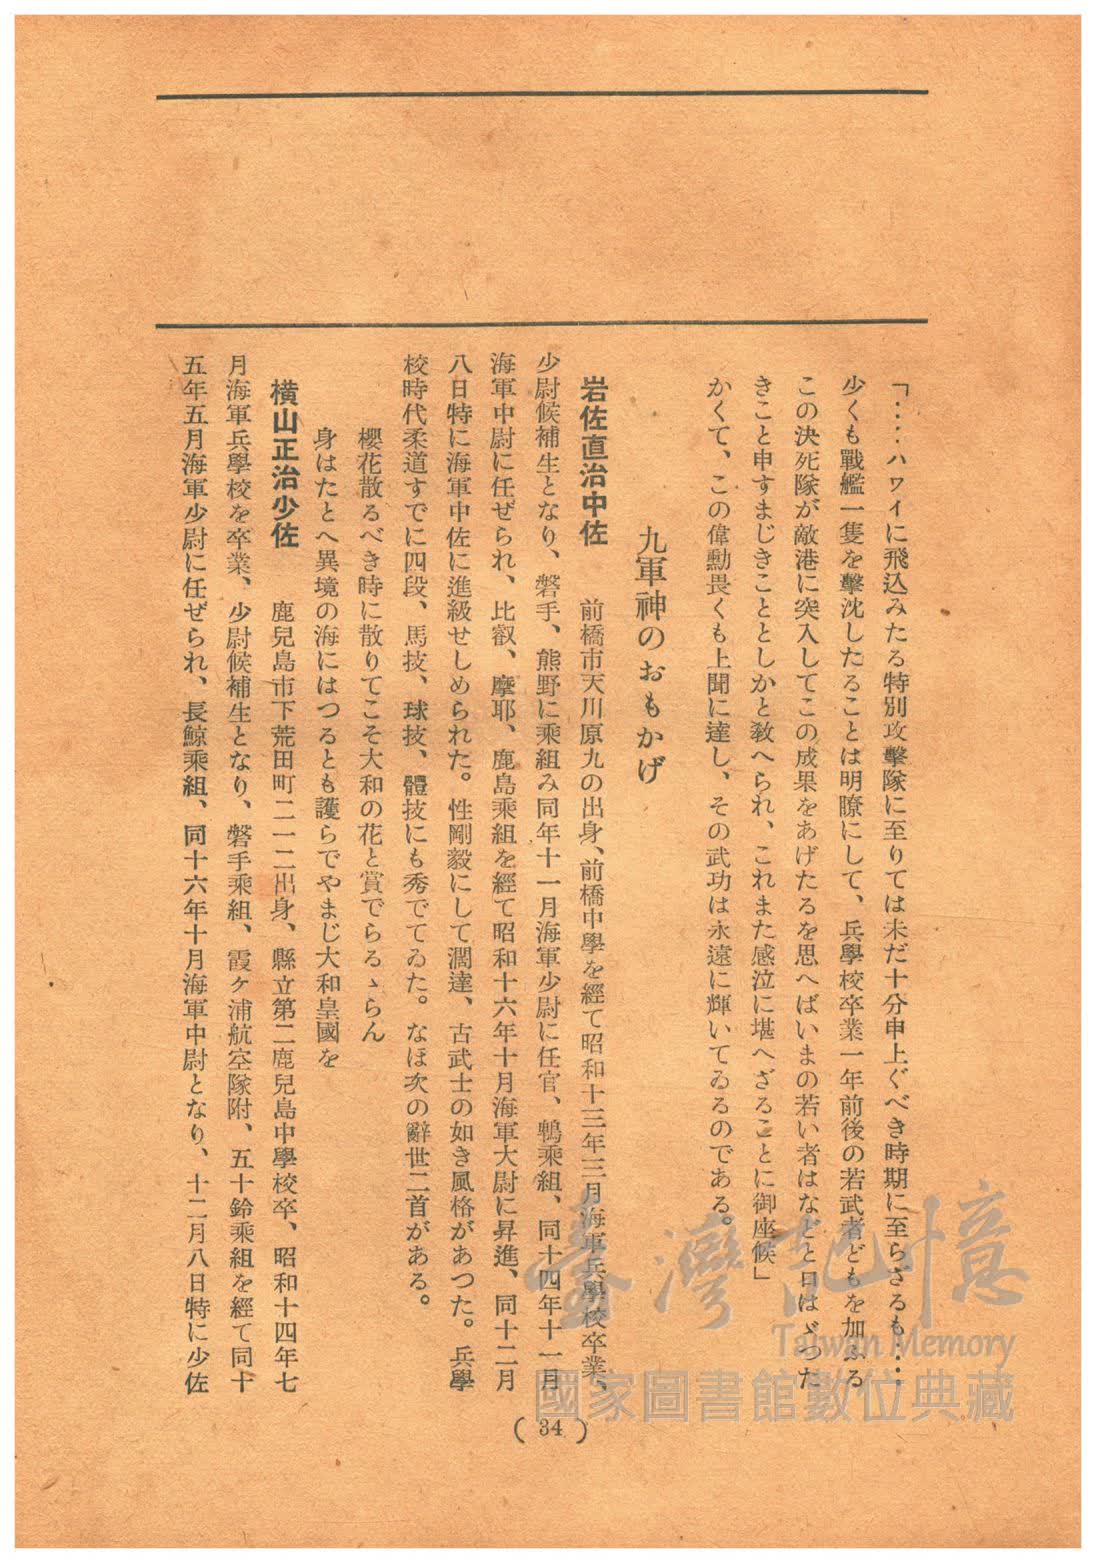 「‥‥ハワイに飛込みたる特別攻擊隊に至りては未だ十分申上ぐべき時期に至らざるも‥‥
少くも戰艦一隻を擊沈したることは明瞭にして、兵學校卒業一年前後の若武者どもを加ふる
この決死隊が敵港に突入してこの成果をあげたるを思へばいまの若い者はなどと口はゞつた
きこと申すまじきこととしかと敎へられ、これまた感泣に堪へざることに御座候」
かくて、この偉勳畏くも上聞に達し、その武功は永遠に輝いてゐるのである。
九軍神のおもかげ
岩佐直治中佐　前橋市天川原九の出身、前橋中學を經て昭和十三年三月海軍兵學校卒業、
少尉候補生となり、磐手、熊野に乘組み同年十一月海軍少尉に任官、鵯乘組、同十四年十一月
海軍中尉に任ぜられ、比叡、摩耶、鹿島乘組を經て昭和十六年十月海軍大尉に昇進、同十二月
八日特に海軍中佐に進級せしめられた。性剛毅にして濶達、古武士の如き風格があつた。兵學
校時代柔道すでに四段、馬技、球技、體技にも秀でてゐた。なほ次の辭世二首がある。
櫻花散るべき時に散りてこそ大和の花と賞でらるゝらん
身はたとへ異境の海にはつるとも護らでやまじ大和皇國を
橫山正治少佐　鹿兒島市下荒田町二一二出身、縣立第二鹿兒島中學校卒、昭和十四年七
月海軍兵學校を卒業、少尉候補生となり、磐手乘組、霞ケ浦航空隊附、五十鈴乘組を經て同十
五年五月海軍少尉に任ぜられ、長鯨乘組、同十六年十月海軍中尉となり、十二月八日特に少佐
( 34 )
臺灣記憶
Taiwan Memory
國家圖書館數位典藏